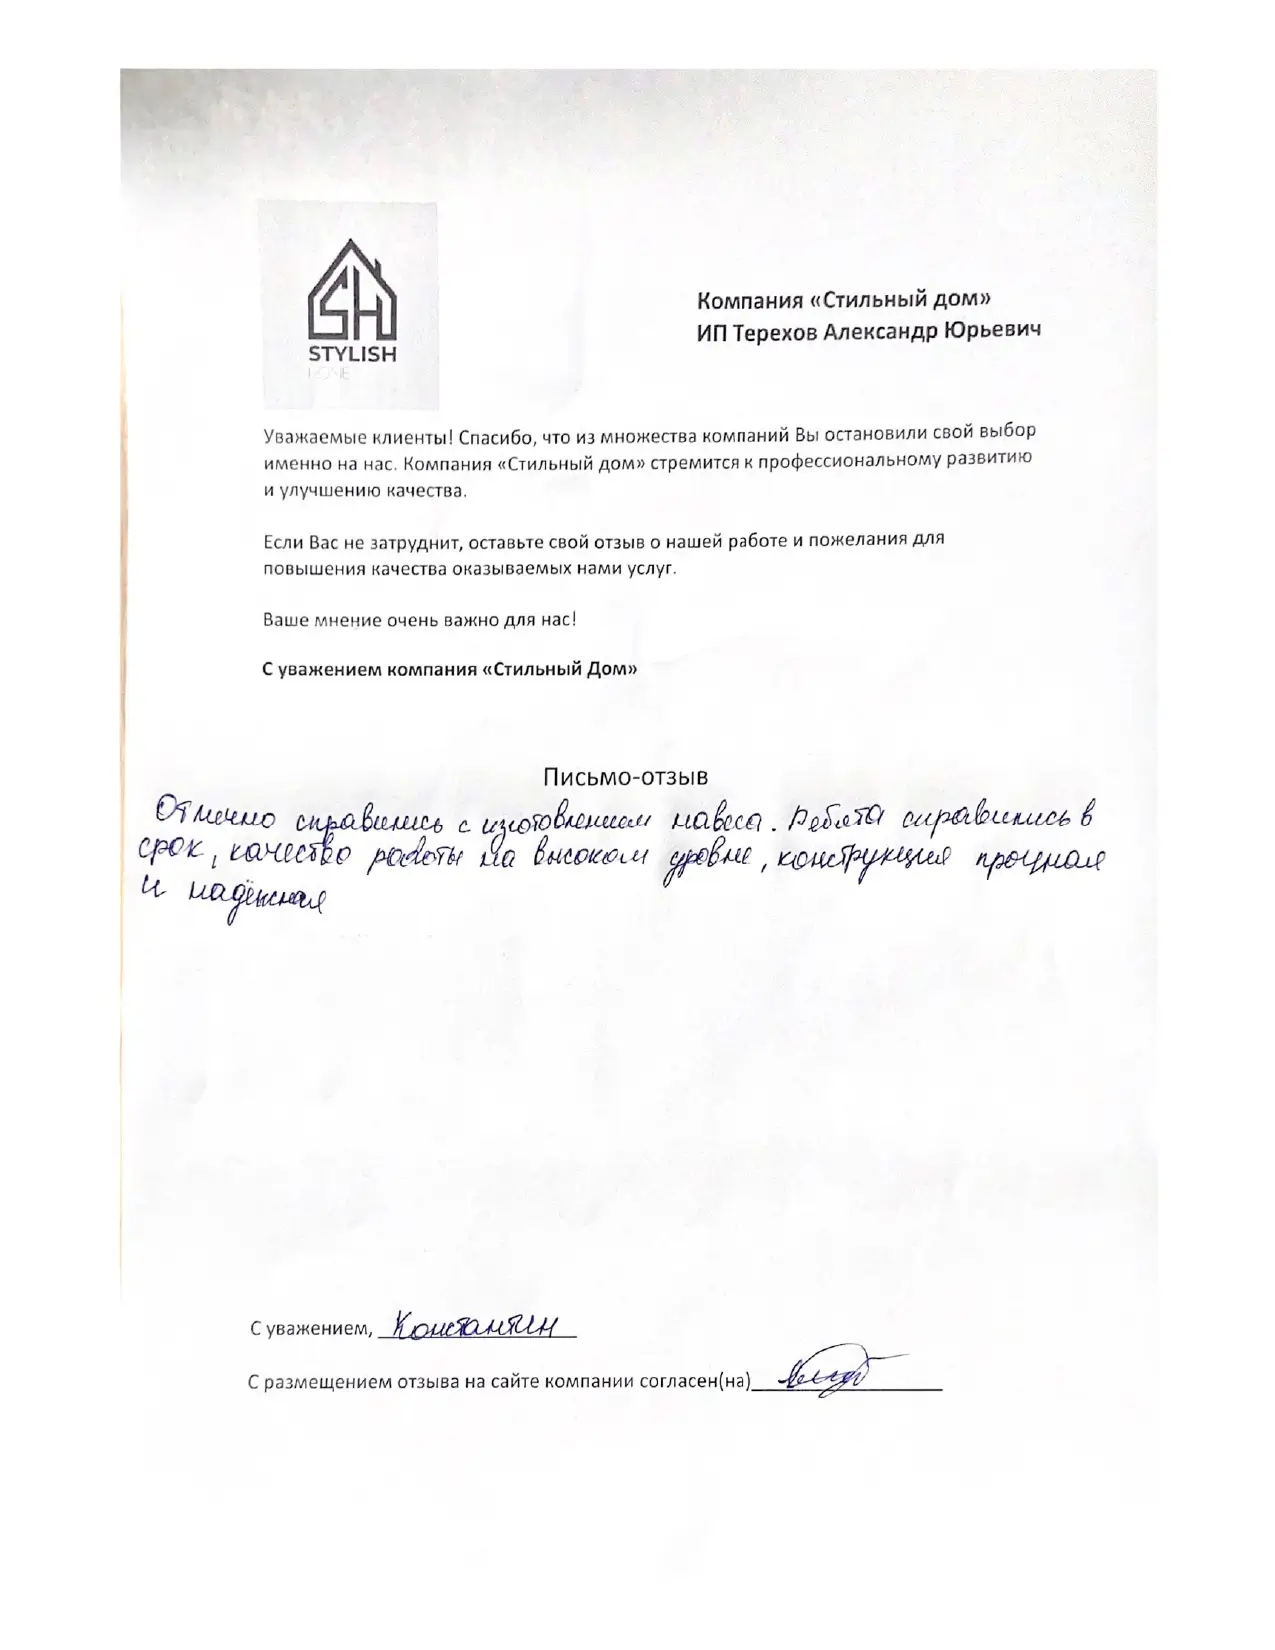 STYLISH
HOME
Компания «Стильный дом»
ИП Терехов Александр Юрьевич
Уважаемые клиенты! Спасибо, что из множества компаний Вы остановили свой выбор
именно на нас. Компания «Стильный дом» стремится к профессиональному развитию
и улучшению качества.
Если Вас не затруднит, оставьте свой отзыв о нашей работе и пожелания для
повышения качества оказываемых нами услуг.
Ваше мнение очень важно для нас!
С уважением компания «Стильный Дом»
Письмо-отзыв
Отлично справились с изготовлением навеса. Ребята справились в
срок, качество работы на высоком уровне, конструкция прочная
и надёжная
С уважением, Константин
С размещением отзыва на сайте компании согласен(на)